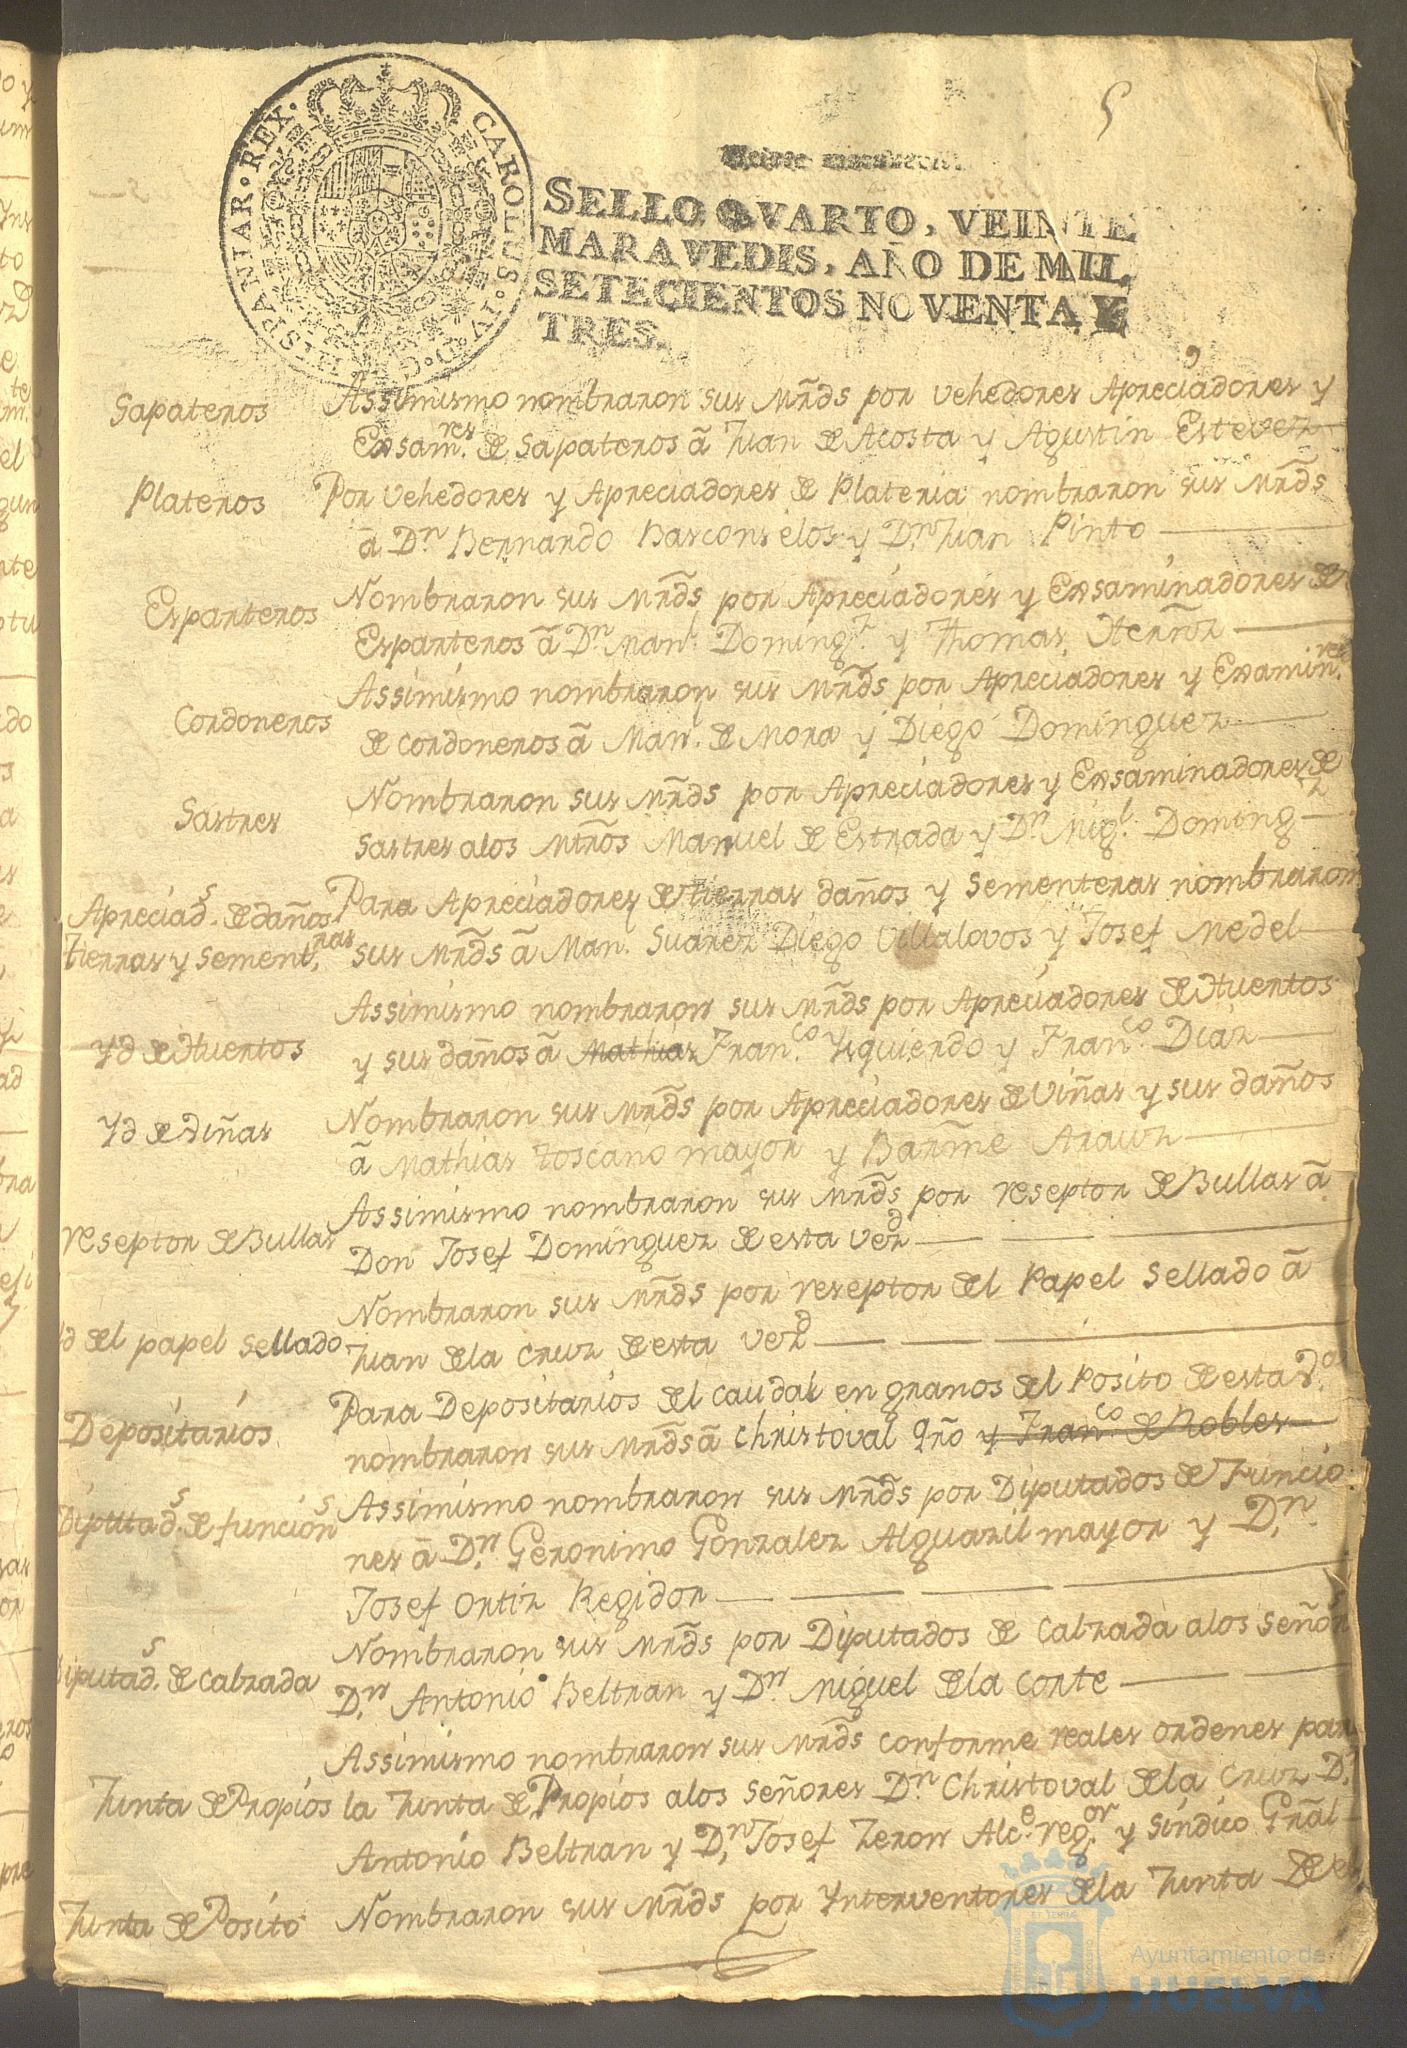 5
Veinte maravedis.
SELLO QVARTO, VEINTE
MARAVEDIS, AÑO DE MIL
SETECIENTOS NOVENTA Y
TRES.
CAROLUS · IV · D · G · HISPANIAR · REX ·
Sapateros
Assimismo nombraron sus Mr̃ds por vehedores Apreciadores y
Exsam.res de Sapateros â Juan de Acosta y Agustin Estevez
Plateros
Por vehedores y Apreciadores de Plateria nombraron sus Mr̃ds
â D.n Bernardo Basconselos y D.n Juan Pinto
Esparteros
Nombraron sus Mr̃ds por Apreciadores y Exsaminadores de
Esparteros â D.n Man.l Doming.z y Thomas Herñãz
Cordoneros
Assimismo nombraron sus Mr̃ds por Apreciadores y Examin.res
de cordoneros â Man.l de Mora y Diego Dominguez
Sastres
Nombraron sus Mr̃ds por Apreciadores y Exsaminadores de
Sastres alos Mtrõs Manuel de Estrada y D.n Mig.l Doming.z
Apreciad.s de daños
tierras y sement.ras
Para Apreciadores de tierras daños y sementeras nombraron
sus Mr̃ds â Man. Suarez Diego Villalovos y Josef Medel
Yd de Huertos
Assimismo nombraron sus Mr̃ds por Apreciadores de Huertos
y sus daños â Mathias Fran.co Ysquierdo y Fran.co Diaz
Yd de viñas
Nombraron sus Mr̃ds por Apreciadores de Viñas y sus daños
â Mathias toscano mayor y Barm̃e Arauz
reseptor de Bullas
Assimismo nombraron sus Mr̃ds por reseptor de Bullas â
Don Josef Dominguez de esta vez.d
Yd del papel sellado
Nombraron sus Mr̃ds por reseptor del Papel Sellado â
Juan dela Cruz de esta vez.d
Depositarios
Para Depositarios del caudal en granos del Posito de esta
nombraron sus Mr̃ds â Christoval Qrõ y Fran.co de Robles
Diputad.s de funcion.s
Assimismo nombraron sus Mr̃ds por Diputados de Funcio
nes â D.n Geronimo Gonzalez Alguazil mayor y D.n
Josef Ortiz Regidor
Diputad.s de calzada
Nombraron sus Mr̃ds por Diputados de Calzada alos Señor.s
D.n Antonio Beltran y D.n Miguel dela Corte
Junta de Propios
Assimismo nombraron sus Mr̃ds conforme reales ordenes para
la Junta de Propios alos Señores D.n Christoval dela Cruz D.n
Antonio Beltran y D.n Josef Zeron Alc.e reg.or y sindico Grãl
Junta de Posito
Nombraron sus Mr̃ds por Ynterventores dela Junta Del
Ayuntamiento de
HUELVA